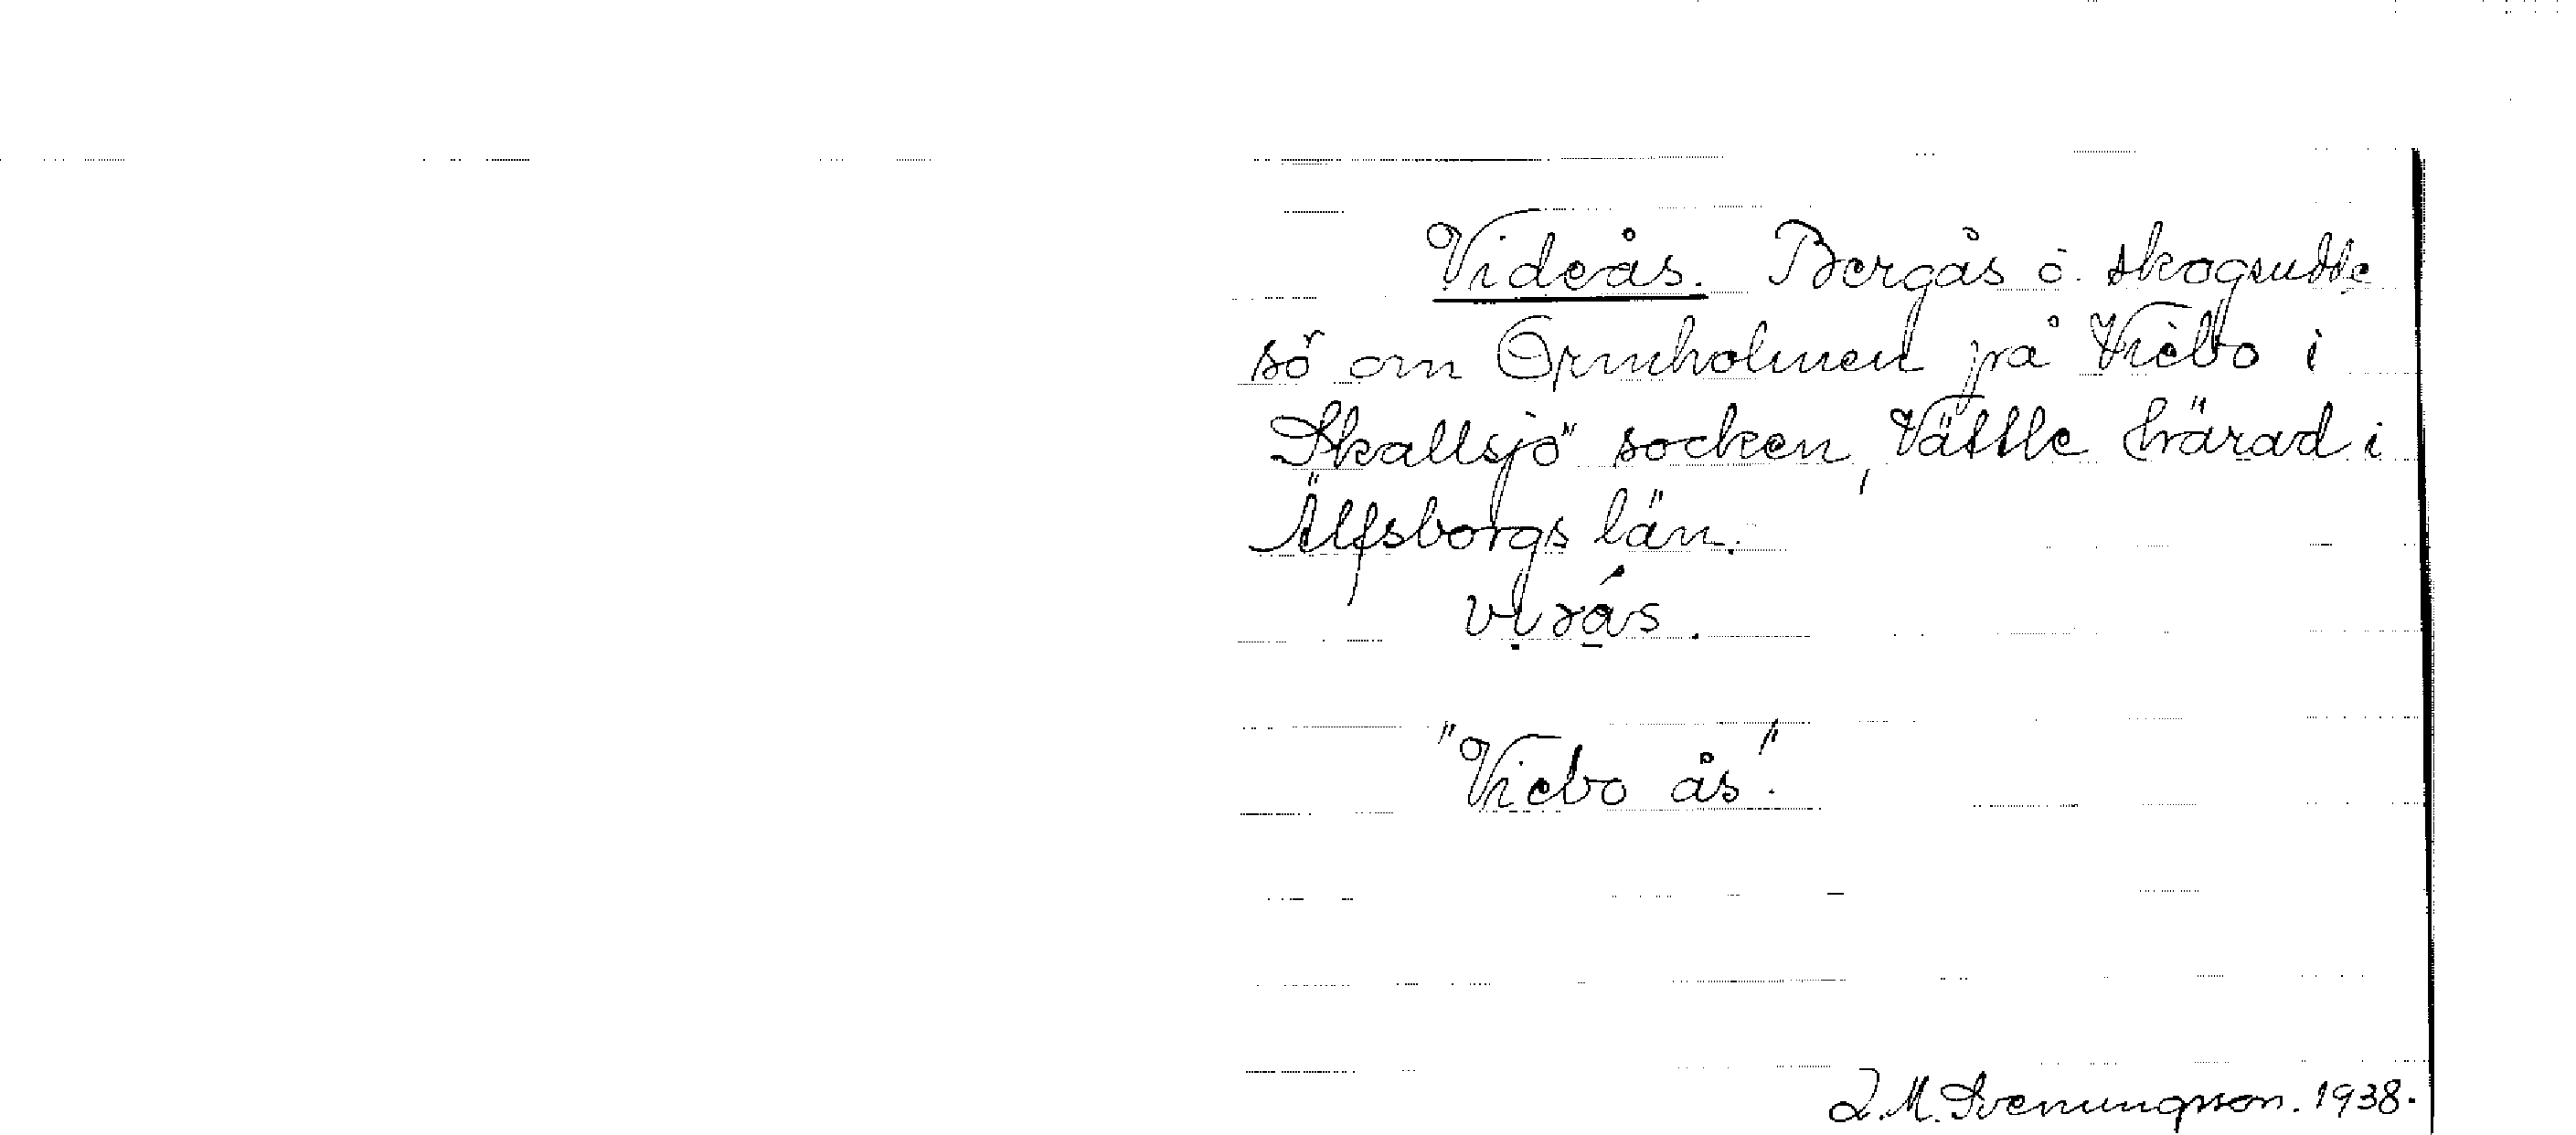 Videås. Bergås o. skogsudde
sö om Ormholmen på Viebo i
Skallsjö socken, Vättle härad i
Älfsborgs län.
"Viebo ås".
J.M. Svenungsson. 1938.